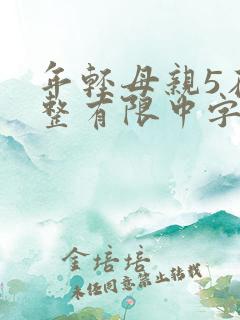 年轻母亲5
整有限中字
金培培
未经同意禁止转载